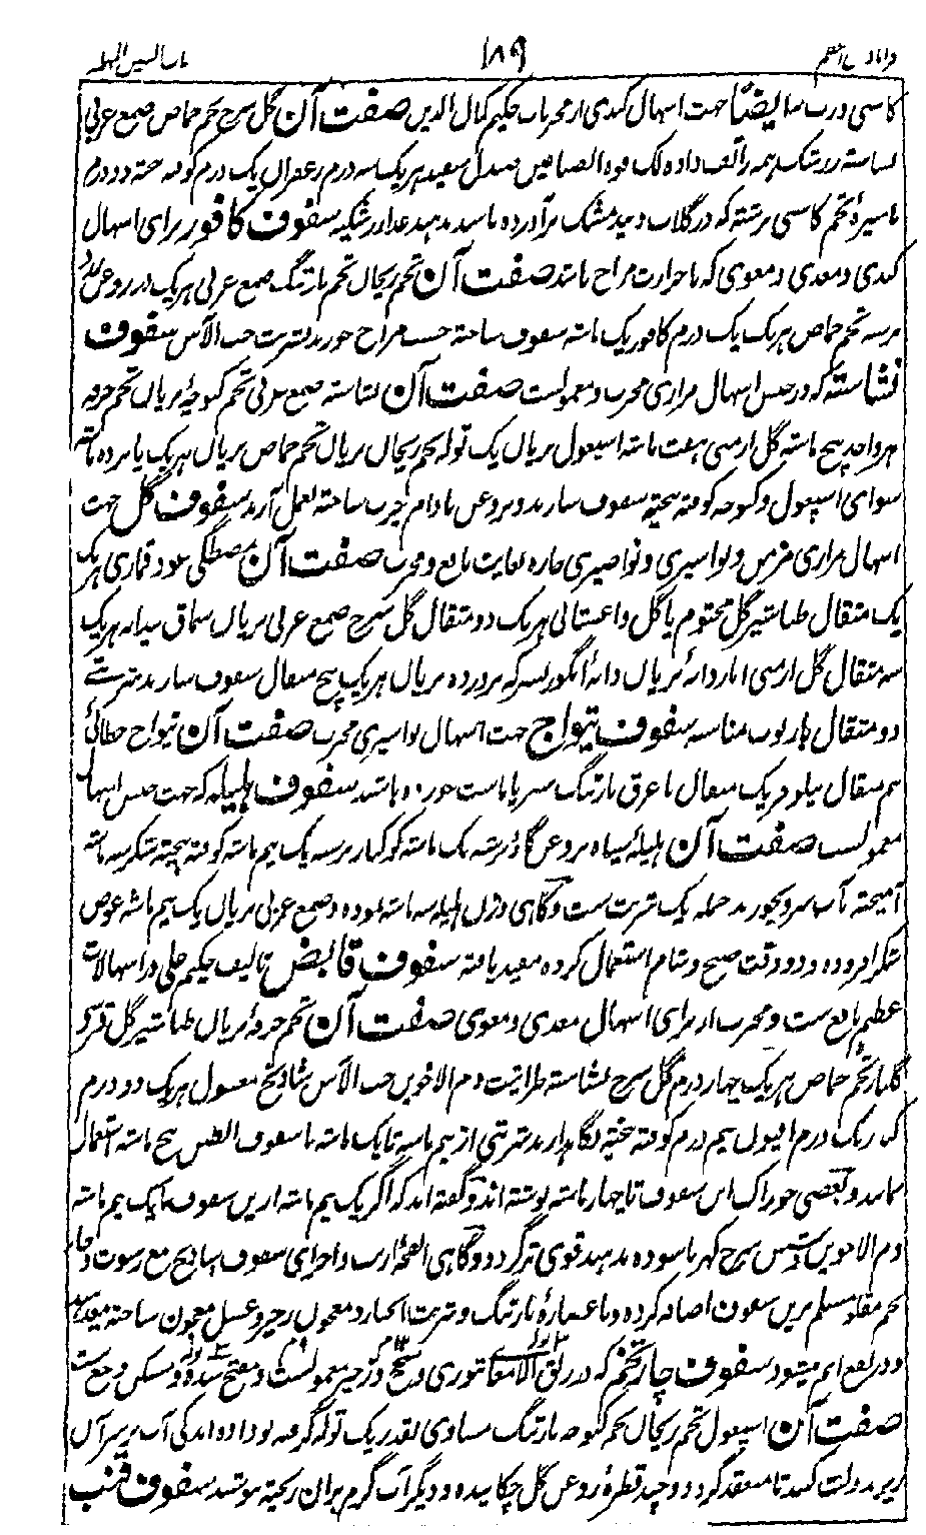 قرابادین اعظم ۱۸۹ باب السین المهمله
کاسنی درب سایضا جهت اسهال کبدی از مجربات حکیم کمال الدین صفت آن گل سرخ تخم حماض صمغ عربی
نشاسته زرشک همه را تف داده لک فوه الصباغین صندل سفید هر یک سه درم زعفران یک درم کوفته بیخته دو درم
با شیرهٔ تخم کاسنی برشته که در گلاب و بیدمشک برآورده باشند بدهند غذا زرشکیه سفوف کافور برای اسهال
کبدی و معدی و معوی که با حرارت مزاج باشد صفت آن تخم ریحان تخم بارتنگ صمغ عربی هر یک در روغن
برشته تخم حماض هر یک یک درم کافور یک ماشه سفوف ساخته حسب مزاج خورند بشربت حب الآس سفوف
نشاسته که در حبس اسهال مراری مجرب و معمولست صفت آن نشاسته صمغ عربی تخم کنوچه بریان تخم خرفه
هر واحد پنج ماشه گل ارمنی هفت ماشه اسپغول بریان یک توله تخم ریحان بریان تخم حماض بریان هر یک یازده ماشه
سوای اسپغول و کنوچه کوفته بیخته سفوف سازند و بروغن بادام چرب ساخته بعمل آرند سفوف گل جهت
اسهال مراری مزمن و بواسیری و نواصیری حاره بغایت نافع و مجرب صفت آن مصطگی عود قماری هر یک
یک مثقال طباشیر گل مختوم یا گل داغستانی هر یک دو مثقال گل سرخ صمغ عربی بریان سماق بیدانه هر یک
سه مثقال گل ارمنی اناردانه بریان دانهٔ انگور بسرکه پرورده بریان هر یک پنج مثقال سفوف سازند شربتے
دو مثقال با ربوب مناسبه سفوف تیواج جهت اسهال بواسیری مجرب صفت آن تیواج خطائی
نیم مثقال نیلوفر یک مثقال با عرق بارتنگ سرپا یا ست خورده باشد سفوف هلیله که جهت حبس اسهال
معمولست صفت آن هلیلهٔ سیاه بروغن گاؤ برشته یک ماشه کوکنار برشته یک نیم ماشه کوفته بیخته شکر سه ماشه
آمیخته بآب سرد بخورند جمله یک شربت ست و گاهی وزن هلیله سه ماشه نموده و صمغ عربی بریان یک نیم ماشه عوض
شکر افزوده و دو وقت صبح و شام استعمال کرده مفید یافته سفوف قابض تالیف حکیم علی در اسهالات
عظیم نافع ست و مجرب از برای اسهال معدی و معوی صفت آن تخم خرفه بریان طباشیر گل
گلنار تخم حماض هر یک چهار درم گل سرخ نشاسته طراثیث دم الاخوین حب الآس شادنج مغسول هر یک دو درم
درم افیون نیم درم کوفته بیخته نگاهدارند شربتی از نیم ماشه تا یک ماشه با سفوف الطین پنج ماشه استعمال
نمایند و بعضی خوراک این سفوف تا چهار ماشه نوشته اند و گفته اند که اگر یک نیم ماشه ازین سفوف با یک نیم ماشه
دم الاخوین و شش سرخ کهربا سوده بدهند قوی تر گردد و گاهی انفحهٔ ارنب و اجزای سفوف
تخم مقلو مسلم برین سفوف اضافه کرده و با عصارهٔ بارتنگ و شربت انجبار و معجون زحیر و عسل معجون ساخته میدهند
و در نفع اتم میشود سفوف چار تخم که در زلق الامعا بثوری و سحج و زحیر معمولست و مفتح سده و مسکن وجع ست
صفت آن اسپغول تخم ریحان تخم کنوچه بارتنگ مساوی بقدر یک توله گرفته بو داده اندکی آب بر سر آن
ریزند و لت کنند تا منعقد گردد و چند قطرهٔ روغن گل چکانیده و دیگر آب گرم بران ریخته بنوشند سفوف قنب